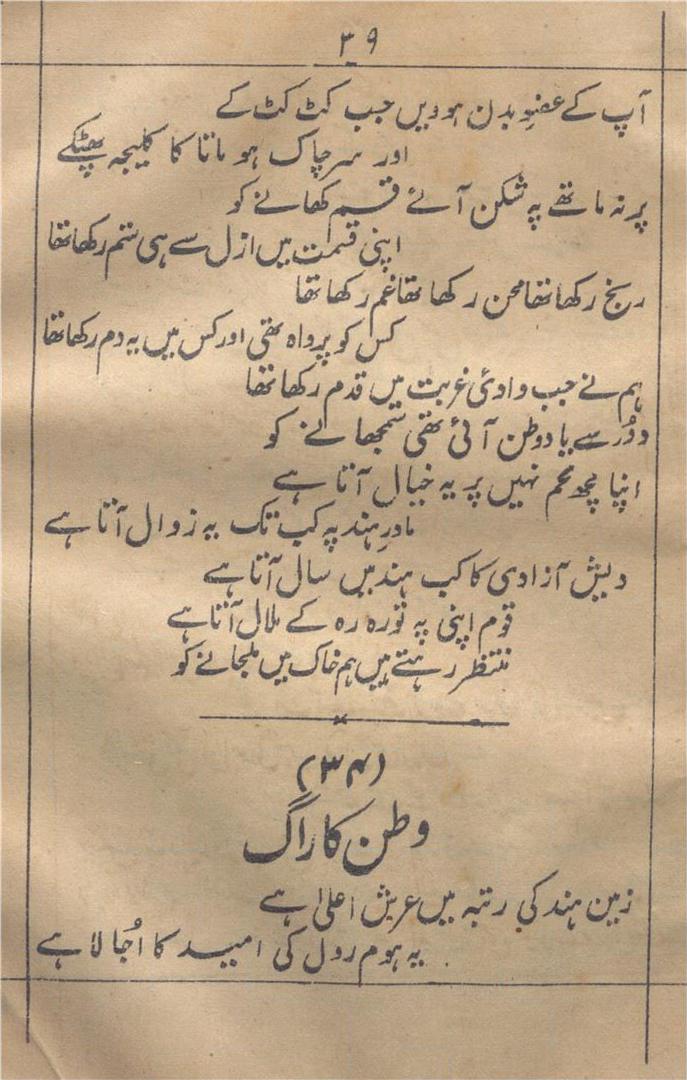 ۳۹
آپ کے عضوِ بدن ہوویں جب کٹ کٹ کے
اور سر چاک ہو ماتا کا کلیجہ پھٹکے
پر نہ ماتھے پہ شکن آئے قسم کھانے کو
اپنی قسمت میں ازل سے ہی ستم رکھا تھا
رنج رکھا تھا محن رکھا تھا غم رکھا تھا
کس کو پرواہ تھی اور کس میں یہ دم رکھا تھا
ہم نے جب وادئی غربت میں قدم رکھا تھا
دُور سے یاد وطن آئی تھی سمجھانے کو
اپنا کچھ غم نہیں پر یہ خیال آتا ہے
مادرِ ہند پہ کب تک یہ زوال آتا ہے
دیش آزادی کا کب ہند میں سال آتا ہے
قوم اپنی پہ تو رہ رہ کے ملال آتا ہے
منتظر رہتے ہیں ہم خاک میں ملجانے کو
(۳۴)
وطن کا راگ
زمین ہند کی رتبہ میں عرش اعلیٰ ہے
یہ ہوم رول کی امید کا اُجالا ہے